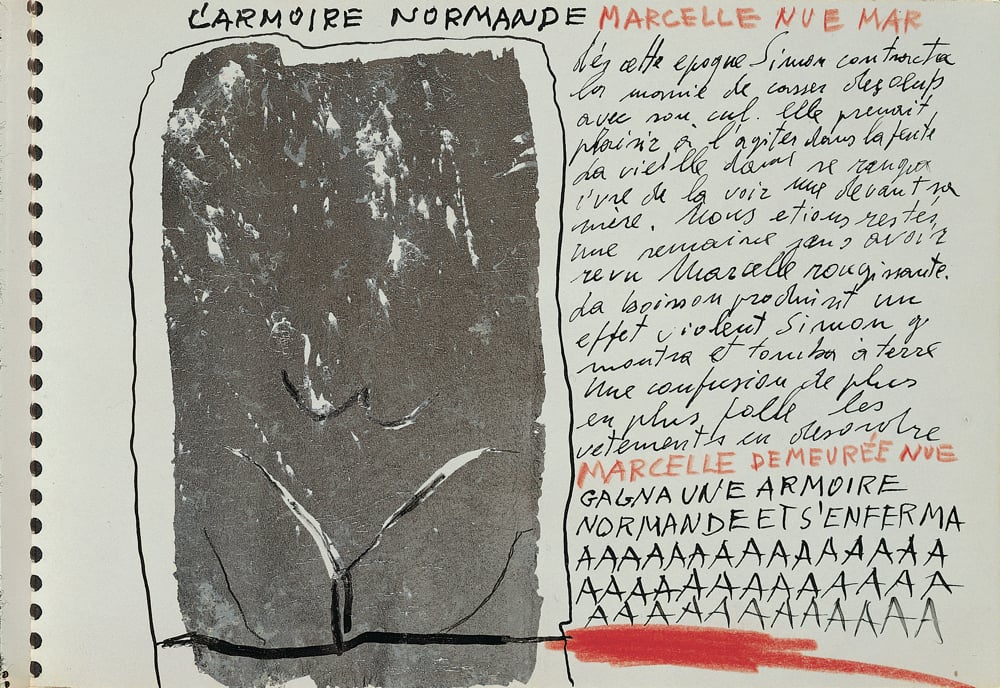 L'ARMOIRE NORMANDE MARCELLE NUE MAR
dès cette epoque Simon contracta
la manie de casser des
avec son cul. Elle prenait
plaisir à l'agiter dans la fente
La vieille dame se rangea
ivre de la voir nue devant sa
mère. Nous etions restés
une semaine sans avoir
revu Marcelle rougissante.
La boisson produisit un
effet violent Simon q
montra et tomba à terre
Une confusion de plus
en plus folle les
vetements en desordre
MARCELLE DEMEURÉE NUE
GAGNA UNE ARMOIRE
NORMANDE ET S'ENFERMA
AAAAAAAAAAAAAAA
AAAAAAAAAAAAAA
AAAAAAAAAAAA